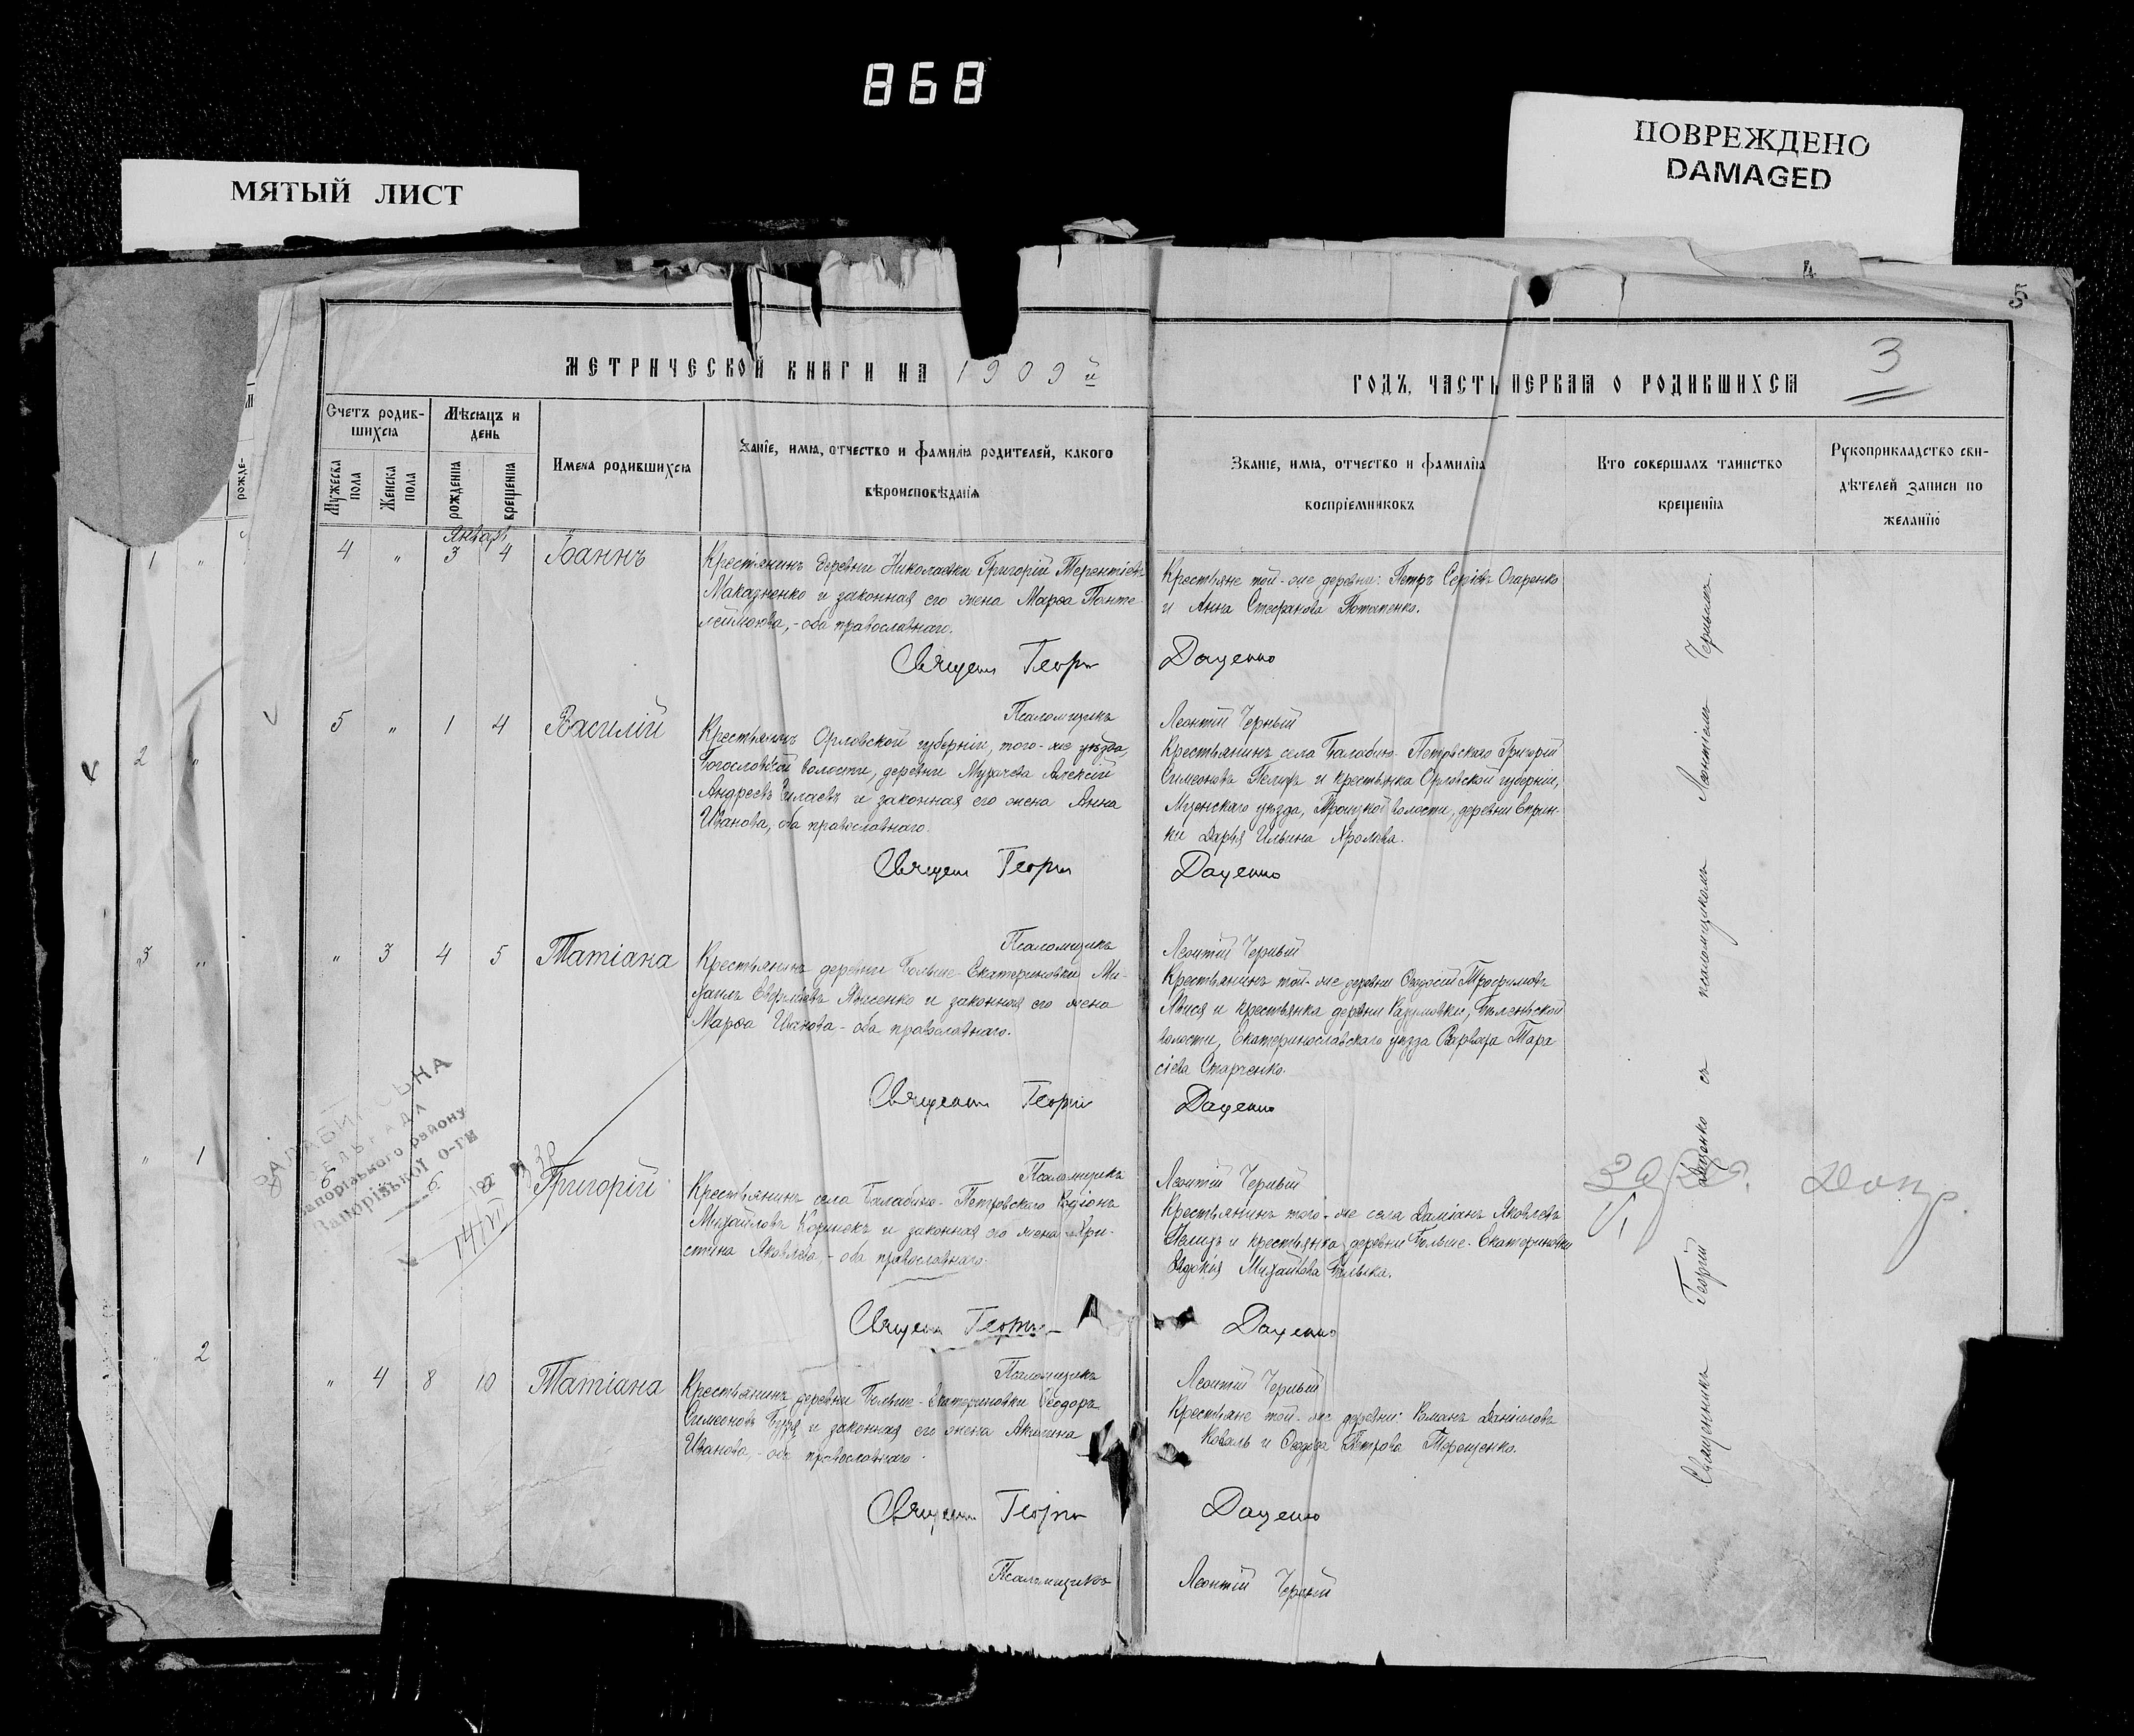 868
МЯТЫЙ ЛИСТ
ПОВРЕЖДЕНО
DAMAGED
4
5
3
МЕТРИЧЕСКОЙ КНИГИ НА 1909й
ГОДЪ, ЧАСТЬ ПЕРВАЯ О РОДИВШИХСЯ
Счетъ родив-
шихся
Мужеска пола
Женска пола
Мѣсяцъ и
день
рожденія
крещенія
Имена родившихся
Званіе, имя, отчество и фамилія родителей, какого
вѣроисповѣданія
Званіе, имя, отчество и фамилія
воспріемниковъ
Кто совершалъ таинство
крещенія
Рукоприкладство сви-
дѣтелей записи по
желанію
Январь
4 „ 3 4 Іоаннъ
Крестьянинъ деревни Николаевки Григорій Терентіевъ
Макаренко и законная его жена Марѳа Панте-
леймонова, - оба православнаго.
Крестьяне той-же деревни: Петръ Сергіевъ Огаренко
и Анна Стефанова Потапенко.
Священ Георгій Даценко
Псаломщикъ Леонтій Черный
5 „ 1 4 Василій
Крестьянинъ Орловской губерніи, того-же уѣзда,
Богословской волости, деревни Мурачева Алексій
Андреевъ Силаевъ и законная его жена Анна
Иванова, оба православнаго.
Крестьянинъ села Балабино-Петровскаго Григорій
Симеоновъ Пелихъ и крестьянка Орловской губерніи,
Мценскаго уѣзда, Троицкой волости, деревни
ки Дарья Ильина Фролова.
Священ Георгій Даценко
Псаломщикъ Леонтій Черный
„ 3 4 5 Татіана
Крестьянинъ деревни Больше-Екатериновки Ми-
хаилъ Явисенко и законная его жена
Марѳа Иванова - оба православнаго.
Крестьянинъ той-же деревни Ѳеодосій Трофимовъ
и крестьянка деревни Разумовки, Бѣленьской
волости, Екатеринославскаго уѣзда Варвара Тара-
сіева Старченко.
Священ Георгій Даценко
Псаломщикъ Леонтій Черный
6 „ 6 8 Григорій
Крестьянинъ села Балабино-Петровскаго Родіонъ
Михайловъ Коринекъ и законная его жена Хри-
стина Яковлева, - оба православнаго.
Крестьянинъ того-же села Даміанъ Яковлевъ
Пелихъ и крестьянка деревни Больше-Екатериновки
Евдокія Михайлова
Священ Георгій Даценко
Псаломщикъ Леонтій Черный
„ 4 8 10 Татіана
Крестьянинъ деревни Больше-Екатериновки Ѳеодоръ
Симеоновъ и законная его жена Акилина
Иванова, - оба православнаго.
Крестьяне той-же деревни: Романъ Даніиловъ
Коваль и Ѳеодора Петрова Терещенко.
Священ Георгій Даценко
Псаломщикъ Леонтій Черный
Священникъ Георгій Даценко съ псаломщикомъ Леонтіемъ Чернымъ.
Запорізького району
Запорізької о-ги
14/VI
1 „
2 „
3 „
„ 1
„ 2